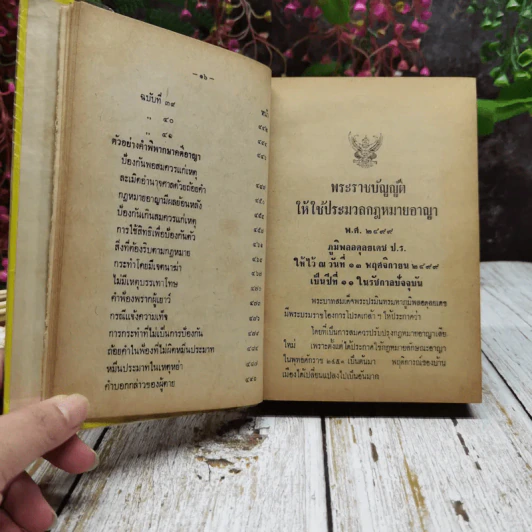 — ๑๖ —
หน้า
ฉบับที่ ๓๙
" ๔๐
" ๔๑
ตัวอย่างคำพิพากษาคดีอาญา
ป้องกันพอสมควรแก่เหตุ
ละเมิดอำนาจศาลด้วยถ้อยคำ
กฎหมายอาญามีผลย้อนหลัง
ป้องกันเกินสมควรแก่เหตุ
การใช้สิทธิเพื่อป้องกันตัว
สิ่งที่ต้องริบตามกฎหมาย
กระทำโดยมีเจตนาฆ่า
ไม่มีเหตุบรรเทาโทษ
คำฟ้องพรากผู้เยาว์
กรณีแจ้งความเท็จ
การกระทำที่ไม่เป็นการป้องกัน
ถ้อยคำในฟ้องที่ไม่ผิดหมิ่นประมาท
หมิ่นประมาทในเหตุหย่า
คำบอกกล่าวของผู้ตาย
พระราชบัญญัติ
ให้ใช้ประมวลกฎหมายอาญา
พ.ศ. ๒๔๙๙
ภูมิพลอดุลยเดช ป.ร.
ให้ไว้ ณ วันที่ ๑๓ พฤศจิกายน ๒๔๙๙
เป็นปีที่ ๑๑ ในรัชกาลปัจจุบัน
พระบาทสมเด็จพระปรมินทรมหาภูมิพลอดุลยเดช
มีพระบรมราชโองการโปรดเกล้า ฯ ให้ประกาศว่า
โดยที่เป็นการสมควรปรับปรุงกฎหมายอาญาเสีย
ใหม่ เพราะตั้งแต่ได้ประกาศใช้กฎหมายลักษณะอาญา
ในพุทธศักราช ๒๔๕๑ เป็นต้นมา พฤติการณ์ของบ้าน
เมืองได้เปลี่ยนแปลงไปเป็นอันมาก